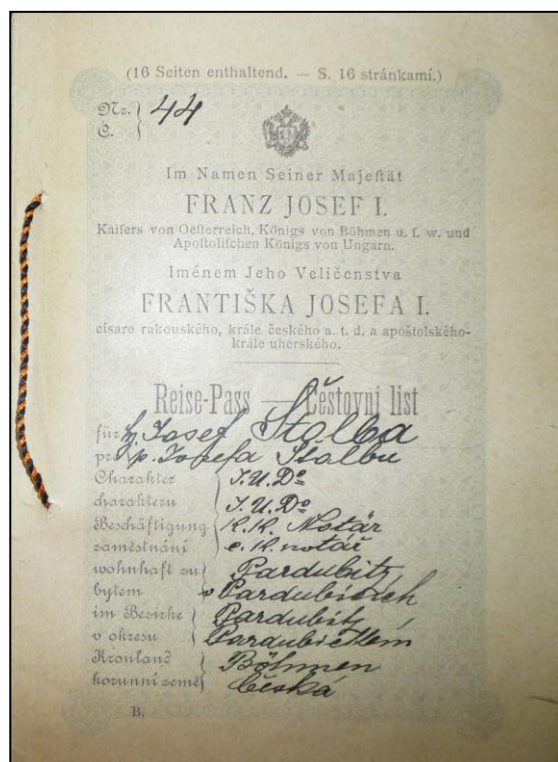 (16 Seiten enthaltend. — S. 16 stránkami.)
Nr. } 44
Č.
Im Namen Seiner Majeſtät
FRANZ JOSEF I.
Kaiſers von Oeſterreich, Königs von Böhmen u. ſ. w. und
Apoſtoliſchen Königs von Ungarn.
Iménem Jeho Veličenstva
FRANTIŠKA JOSEFA I.
císaře rakouského, krále českého a. t. d. a apoštolského-
krále uherského.
Reise-Pass — Čestovní list
für H. Josef Štolba
pro p. Josefa Štolbu
Charakter } J.U.Dr
charakteru J.U.Dr
Beschäftigung } K.K. Notär
zaměstnání c.k. notář
wohnhaft zu } Pardubitz
bytem v Pardubicích
im Bezirke } Pardubitz
v okresu Pardubickém
Kronland } Böhmen
korunní země } Česká
B.